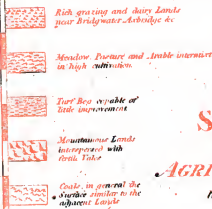 Rich grazing and dairy Lands
near Bridgwater Axbridge &c
Meadow, Pasture and Arable intermixt
in high cultivation
Turf Bog capable of
little improvement
Mountainous Lands
interspersed with
fertile Vales
Coals, in general the
Surface similar to the
adjacent Lands
S
AGRI